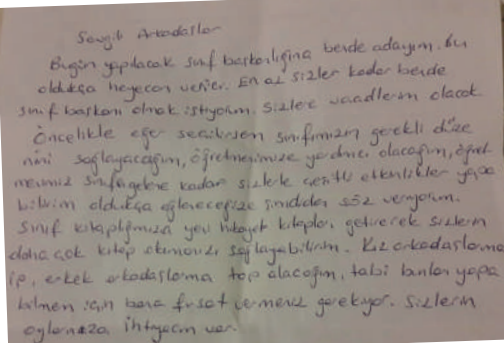 Sevgili Arkadaşlar
Bugün yapılacak sınıf başkanlığına bende adayım. Bu
oldukça heyecan verici. En az sizler kadar bende
sınıf başkanı olmak istiyorum. Sizlere vaadlerim olacak
Öncelikle eğer seçilirsem sınıfımızın gerekli düze
nini sağlayacağım, öğretmenimize yardımcı olacağım, öğret
menimiz sınıfa gelene kadar sizlerle çeşitli etkinlikler yapa
bilirim oldukça eğleneceğize şimdiden söz veriyorum.
Sınıf kitaplığımıza yeni hikayet kitapları getirerek sizlerin
daha çok kitap okumanızı sağlayabilirim. Kız arkadaşlarıma
ip, erkek arkadaşlarıma top alacağım, tabi bunları yapa
bilmem için bana fırsat vermeniz gerekiyor. Sizlerin
oylarınıza ihtiyacım var.